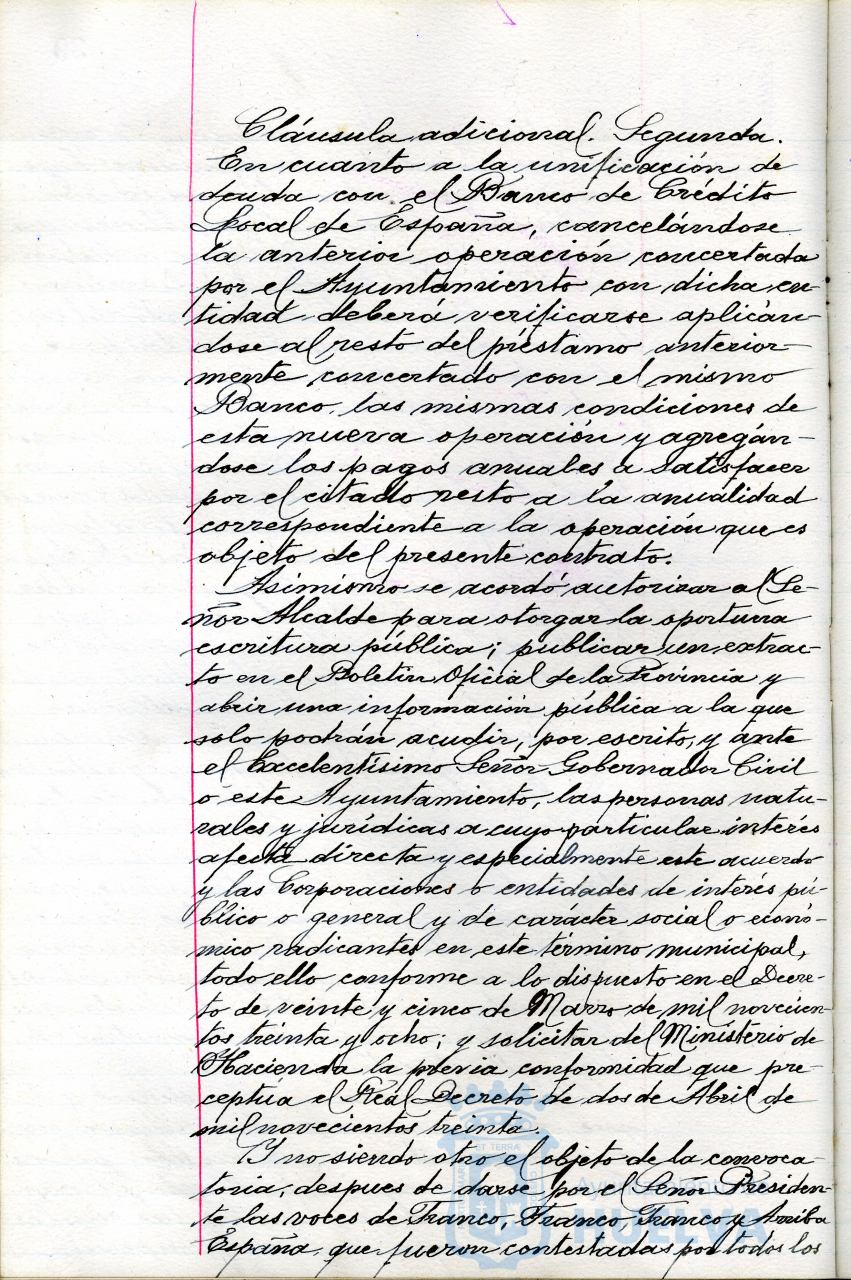 Cláusula adicional. Segunda.
En cuanto a la unificación de
deuda con el Banco de Crédito
Local de España, cancelándose
la anterior operación concertada
por el Ayuntamiento con dicha en-
tidad deberá verificarse aplicán-
dose al resto del préstamo anterior-
mente concertado con el mismo
Banco, las mismas condiciones de
esta nueva operación y agregán-
dose los pagos anuales a satisfacer
por el citado resto a la anualidad
correspondiente a la operación que es
objeto del presente contrato.
Asimismo se acordó autorizar al Se-
ñor Alcalde para otorgar la oportuna
escritura pública; publicar un extrac-
to en el Boletín Oficial de la Provincia y
abrir una información pública a la que
solo podrán acudir, por escrito, y ante
el Excelentísimo Señor Gobernador Civil
o este Ayuntamiento, las personas natu-
rales y jurídicas a cuyo particular interés
afecta directa y especialmente este acuerdo
y las Corporaciones o entidades de interés pú-
blico o general y de carácter social o econó-
mico radicantes en este término municipal,
todo ello conforme a lo dispuesto en el Decre-
to de veinte y cinco de Marzo de mil novecien-
tos treinta y ocho; y solicitar del Ministerio de
Hacienda la previa conformidad que pre-
ceptúa el Real Decreto de dos de Abril de
mil novecientos treinta.
Y no siendo otro el objeto de la convoca-
toria, despues de darse por el Señor Presiden-
te las voces de Franco, Franco, Franco y Arriba
España, que fueron contestadas por todos los
Ayuntamiento de
HUELVA